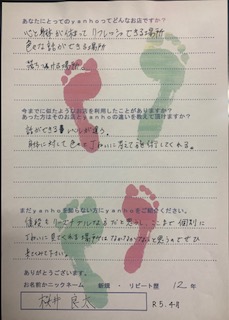 あなたにとってのyanhoってどんなお店ですか?
心と身体が休まって リフレッシュできる場所
色々な話ができる場所
落ちつける場所
今までに似たようなお店を利用したことがありますか?
あった方はそのお店とyanhoの違いを教えて頂けますか?
話ができる レベルが違う。
身体に対して色々と丁ねいに考えて施術してくれる。
まだyanhoを知らない方にyanhoをご紹介ください。
値段もリーズナブルだと思うし、ここまで個別に
丁ねいに見てくれる場所はなかなかないと思うのでぜひ
来てみて下さい。
ありがとうございます。
お名前かニックネーム 新規・リピート歴 12年
桜井 良太 R5.4.8